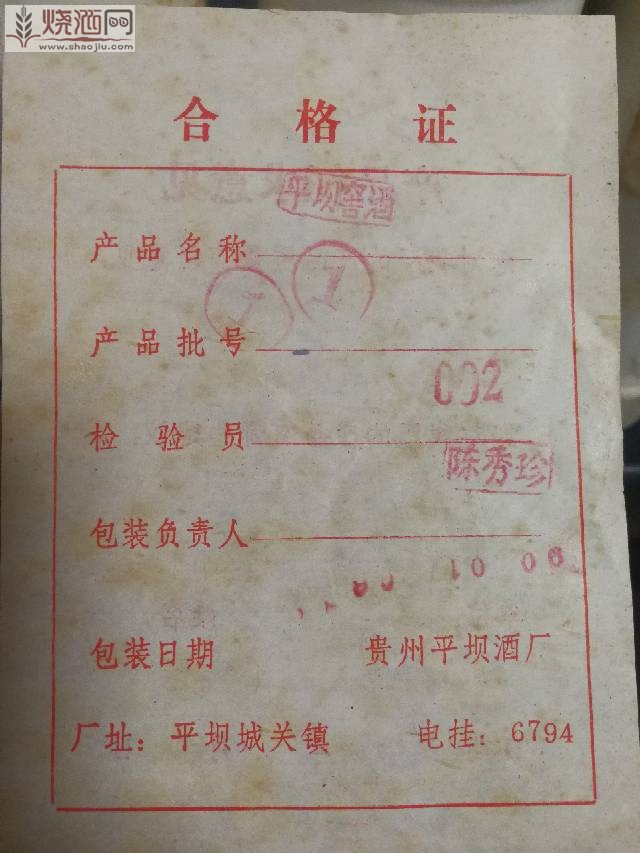 烧酒网
www.shaojiu.com
合格证
平坝窖酒
产品名称
1
产品批号
002
检验员
陈秀珍
包装负责人
10 06
包装日期 贵州平坝酒厂
厂址：平坝城关镇 电挂：6794